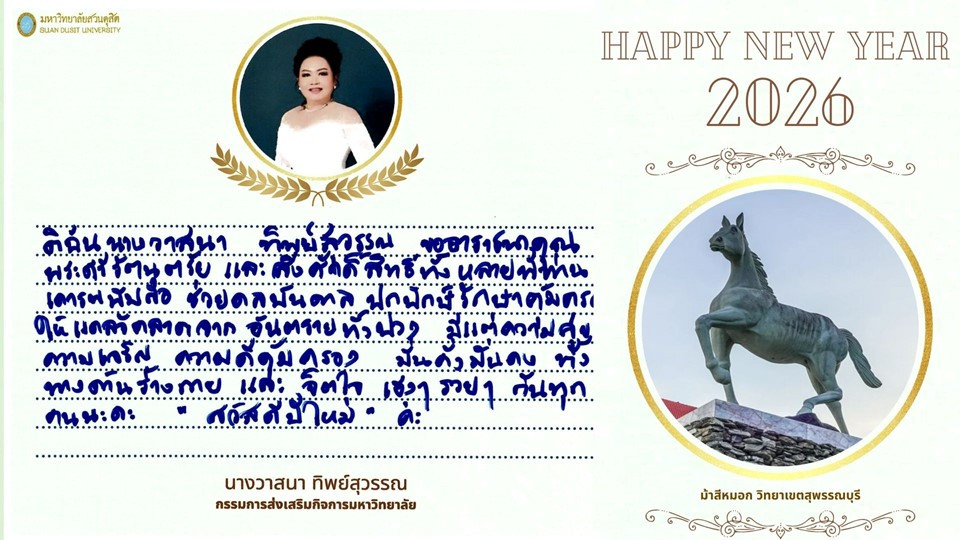 มหาวิทยาลัยสวนดุสิต
SUAN DUSIT UNIVERSITY
HAPPY NEW YEAR
2026
ดิฉันนางวาสนา ทิพย์สุวรรณ ขออาราธนาคุณ
พระศรีรัตนตรัย และสิ่งศักดิ์สิทธิ์ทั้งหลายที่ท่าน
เคารพนับถือ ช่วยดลบันดาล ปกปักษ์รักษาคุ้มครอง
ให้แคล้วคลาดจาก อันตรายทั้งปวง มีแต่ความสุข
ความเจริญ ความดีคุ้มครอง มั่นคั่งมั่นคง ทั้ง
ทางด้านร่างกาย และ จิตใจ เฮงๆ รวยๆ กันทุก
คนนะคะ " สวัสดีปีใหม่ " ค่ะ
นางวาสนา ทิพย์สุวรรณ
กรรมการส่งเสริมกิจการมหาวิทยาลัย
ม้าสีหมอก วิทยาเขตสุพรรณบุรี